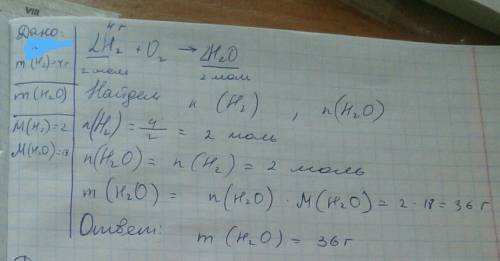 VIII
Дано:
m (H₂)=4г
m(H₂O)
M(H₂)=2
M(H₂O)=18
4 г
2H₂ + O₂ → 2H₂O
2 моль 2 моль
Найдем n (H₂) , n(H₂O)
n(H₂) = 4/2 = 2 моль
n(H₂O) = n (H₂) = 2 моль
m (H₂O) = n(H₂O) · M(H₂O) = 2 · 18 = 36 г
Ответ: m (H₂O) = 36 г